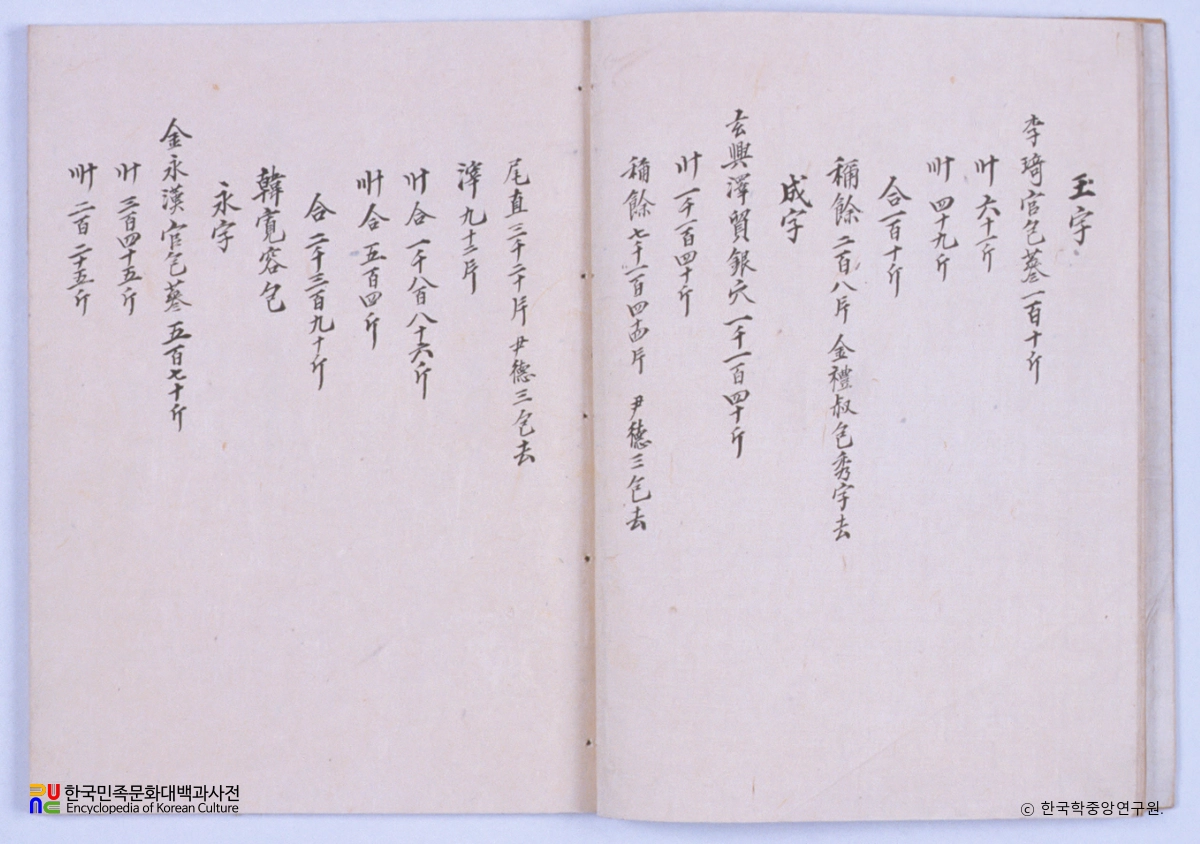 玉字
李琦官包蔘一百十斤
卄 六十一斤
卅 四十九斤
合一百十斤
稱餘二百八片 金禮叔包秀字去
成字
玄興澤貿銀穴一千一百四十斤
卄 一千一百四十斤
稱餘七千一百四十四片 尹德三包去
尾直三千二十片 尹德三包去
滓九十二片
卄 合一千八百八十六斤
卅 合五百四斤
合二千三百九十斤
韓寬容包
永字
金永漢官包蔘五百七十斤
卄 三百四十五斤
卅 二百二十五斤
한국민족문화대백과사전
Encyclopedia of Korean Culture
ⓒ 한국학중앙연구원.